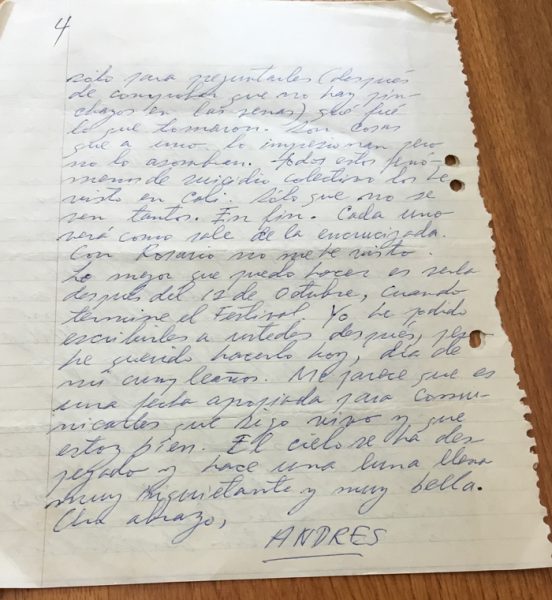 4
sólo para preguntarles (después
de comprobar que no hay pin-
chazos en las venas) qué fué
lo que tomaron. Son cosas
que a uno lo impresionan pero
no lo asombran. Todos estos fenó-
menos de suicidio colectivo los he
visto en Cali. Sólo que no se
ven tantos. En fin. Cada uno
verá como sale de la encrucijada.
Con Rosario no me he visto.
Lo mejor que puedo hacer es verla
después del 12 de Octubre, cuando
termine el Festival. Yo he podido
escribirles a ustedes después, pero
he querido hacerlo hoy, día de
mi cumpleaños. Me parece que es
una fecha apropiada para comu-
nicarles que sigo vivo y que
estoy bien. El cielo se ha des
pejado y hace una luna llena
muy inquietante y muy bella.
Un abrazo,
ANDRES